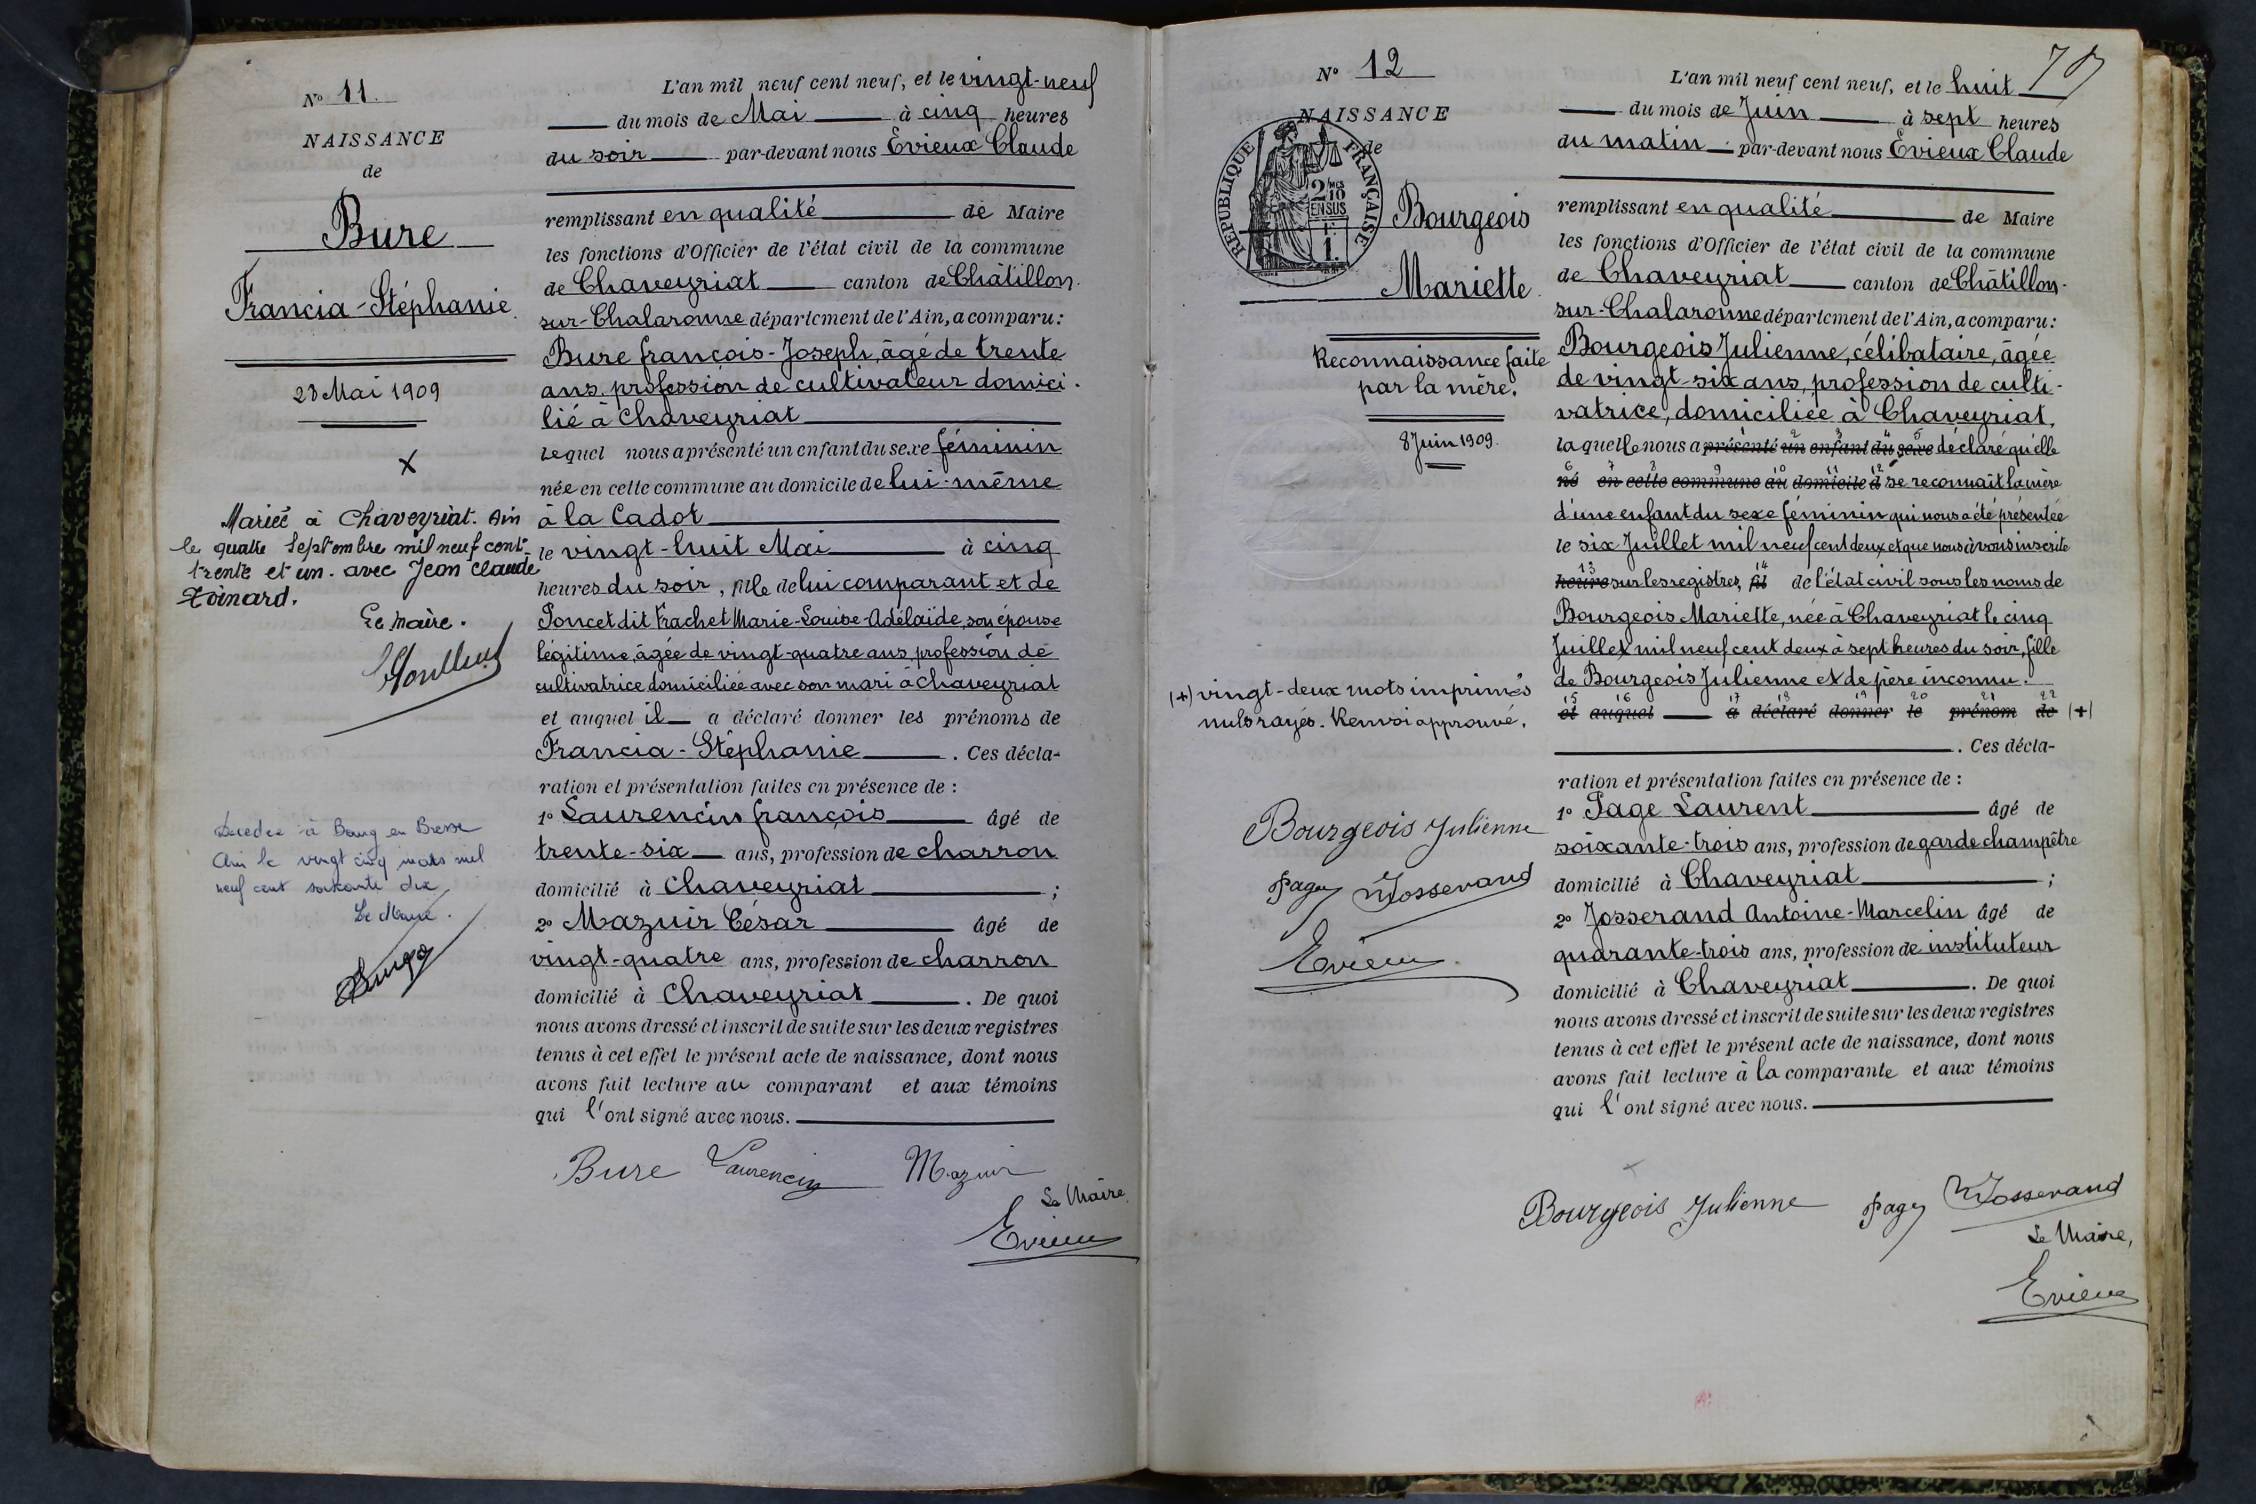 N° 11.
NAISSANCE
de
Bure
Francia-Stéphanie.
28 Mai 1909
X
Mariée à Chaveyriat. Ain
le quatre Septembre mil neuf cent
trente et un. avec Jean Claude
Le maire.
Décédée à Bourg en Bresse
Ain le vingt cinq mars mil
neuf cent soixante dix
Le Maire.
L'an mil neuf cent neuf, et le vingt-neuf
du mois de Mai à cinq heures
du soir par-devant nous Evieux Claude
remplissant en qualité de Maire
les fonctions d'Officier de l'état civil de la commune
de Chaveyriat canton de Châtillon-
sur-Chalaronne département de l'Ain, a comparu:
Bure françois-Joseph, âgé de trente
ans, profession de cultivateur domici-
lié à Chaveyriat
Lequel nous a présenté un enfant du sexe féminin
née en cette commune au domicile de lui-même
à la Cadot
le vingt-huit Mai à cinq
heures du soir, fille de lui comparant et de
Poncet dit Frachet Marie-Louise-Adélaïde, son épouse
légitime, âgée de vingt-quatre ans, profession de
cultivatrice domiciliée avec son mari à Chaveyriat
et auquel il a déclaré donner les prénoms de
Francia-Stéphanie. Ces décla-
ration et présentation faites en présence de:
1° Laurencin françois âgé de
trente-six ans, profession de charron
domicilié à Chaveyriat;
2° Mazuir César âgé de
vingt-quatre ans, profession de charron
domicilié à Chaveyriat. De quoi
nous avons dressé et inscrit de suite sur les deux registres
tenus à cet effet le présent acte de naissance, dont nous
avons fait lecture au comparant et aux témoins
qui l'ont signé avec nous.
Bure Laurencin Mazuir
Le Maire
Evieux
N° 12
NAISSANCE
de
REPUBLIQUE FRANÇAISE
2/10mes
EN SUS
1F.
Bourgeois
Mariette.
Reconnaissance faite
par la mère.
8 Juin 1909.
(+) vingt-deux mots imprimés
nuls rayés. Renvoi approuvé.
Bourgeois Julienne
Page Josserand
Evieux
L'an mil neuf cent neuf, et le huit
du mois de Juin à sept heures
du matin par-devant nous Evieux Claude
remplissant en qualité de Maire
les fonctions d'Officier de l'état civil de la commune
de Chaveyriat canton de Châtillon-
sur-Chalaronne département de l'Ain, a comparu:
Bourgeois Julienne, célibataire, âgée
de vingt-six ans, profession de culti-
vatrice, domiciliée à Chaveyriat,
laquelle nous a présenté un enfant du sexe déclaré qu'elle
né en cette commune au domicile d se reconnaît la mère
d'une enfant du sexe féminin qui nous a été présentée
le six Juillet mil neuf cent deux et que nous avons inscrite
heure sur les registres, fil de l'état civil sous les noms de
Bourgeois Mariette, née à Chaveyriat le cinq
Juillet mil neuf cent deux à sept heures du soir, fille
de Bourgeois Julienne et de père inconnu.
et auquel a déclaré donner le prénom de (+)
. Ces décla-
ration et présentation faites en présence de:
1° Page Laurent âgé de
soixante-trois ans, profession de garde champêtre
domicilié à Chaveyriat;
2° Josserand Antoine-Marcelin âgé de
quarante-trois ans, profession de instituteur
domicilié à Chaveyriat. De quoi
nous avons dressé et inscrit de suite sur les deux registres
tenus à cet effet le présent acte de naissance, dont nous
avons fait lecture à la comparante et aux témoins
qui l'ont signé avec nous.
Bourgeois Julienne Page Josserand
Le Maire,
Evieux